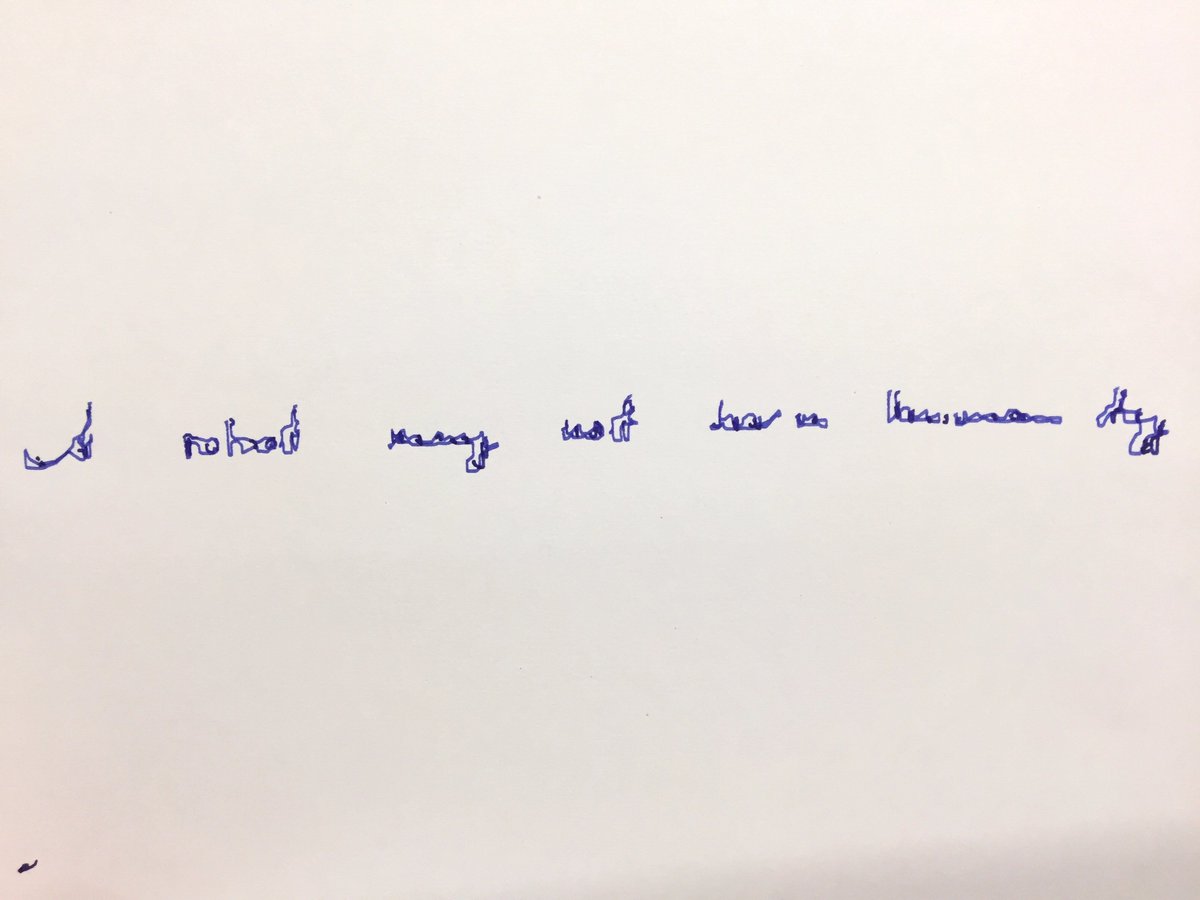 A robot may not harm humanity